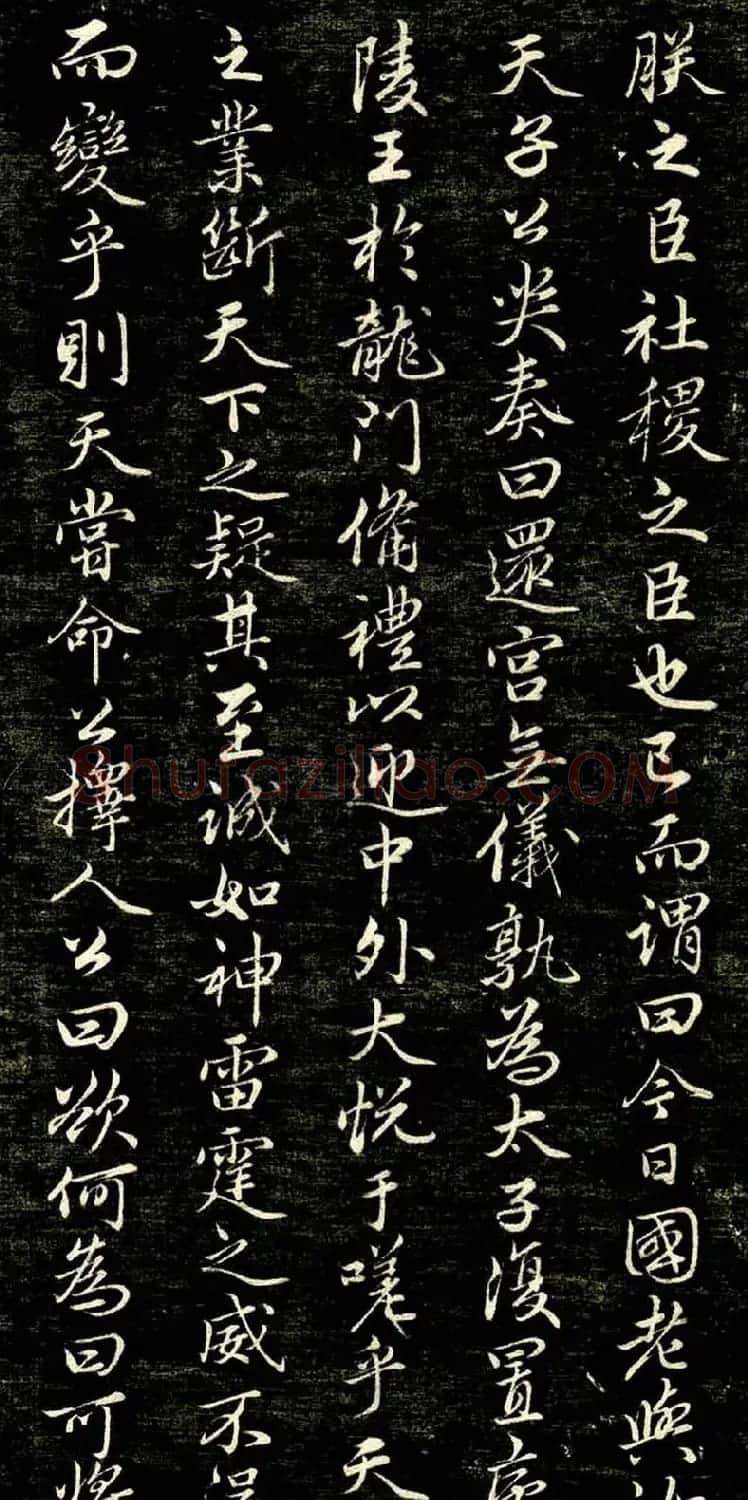 朕之臣社稷之臣也已而谓曰今日國老與
天子公哭奏曰還宮無儀孰為太子復置
陵王於龍門備禮以迎中外大悦于嗟乎天
之業斷天下之疑其至誠如神雷霆之威不
而變乎則天嘗命公擇人公曰欲何為曰可將
Shufaziliao.COM